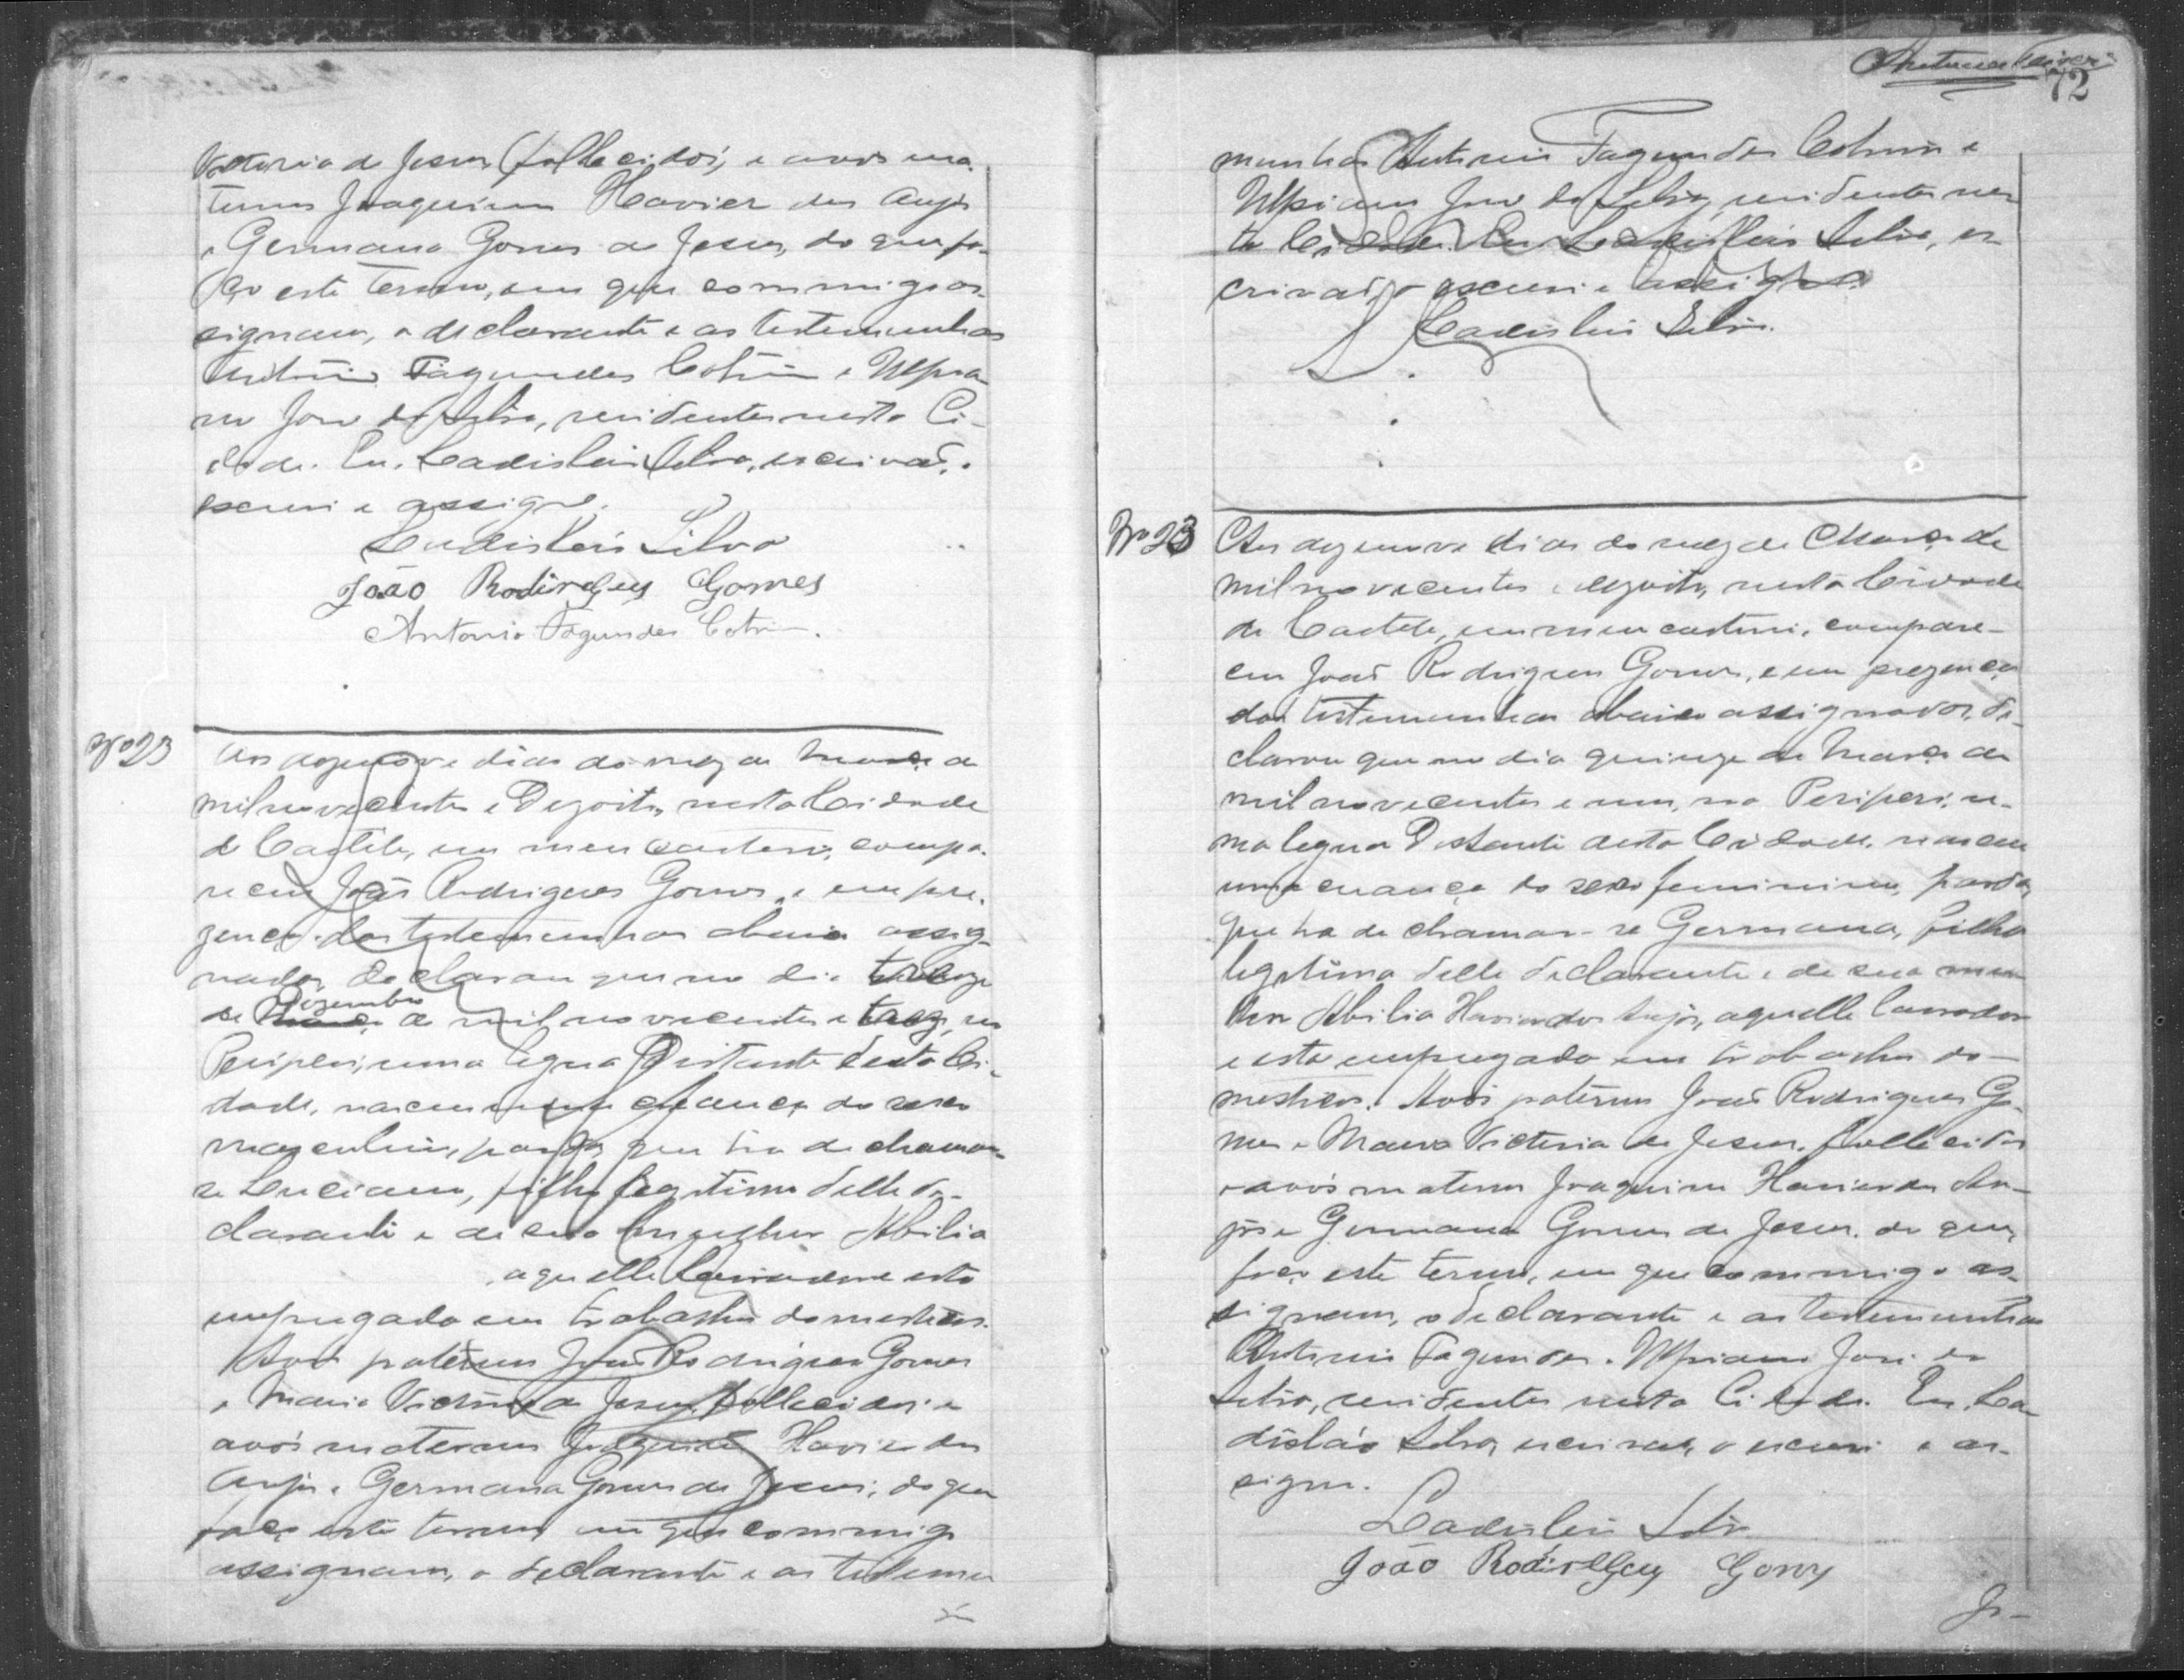 Victoria de Jesus (fallecidos), e avós ma-
ternos Joaquim Xavier dos Anjos
e Germana Gomes de Jesus, do que fa-
ço este termo, em que commigo as-
signam, o declarante e as testemunhas
Antonio Fagundes Cotrim e Ulpia
no José da Silva, residentes nesta Ci-
dade. Eu, Ladisláu Silva, escrivaõ, o
escrevi e assigno.
Ladisláu Silva
João Rodirgeus Gomes
Antonio Fagundes Cotrim.
Nº 23
Aos dezenove dias do mez de Março de
mil novecentos e Dezoito, nesta Cidade
de Caetité, em meu cartorio, compa-
receu João Rodrigues Gomes, e em pre-
zença das testemunhas abaixo assig-
nadas, declarou que no dia
de Dezembro de mil novecentos e treze, no
Periperi, uma legua Distante desta Ci-
dade, nasceu uma creança do sexo
masculino, parda, que ha de chamar-
se Luciano, filho legitimo delle de-
clarante e de sua mulher Abilia
aquelle lavrador e esta
empregada em trabalhos domesticos.
Avós paternos João Rodrigues Gomes
e Maria Victoria de Jesus, fallecidos; e
avós maternos Joaquim Xavier dos
Anjos e Germana Gomes de Jesus; do que
faço este termo em que commigo
assignam, o declarante e as testemu
72
munhas Antonio Fagundes Cotrim e
Ulpiano José da Silva, residentes nes
ta Cidade. Eu Ladisláu Silva, es-
crivaõ o escrevi e assigno.
Ladisláu Silva.
Nº 23
Aos dezenove dias do mez de Março de
mil novecentos e dezoito, nesta Cidade
de Caetité, em meu cartorio, compare-
ceu João Rodrigues Gomes, e em prezença
das testemunhas abaixo assignadas, de-
clarou que no dia quinze de Março de
mil novecentos e um, no Periperi, u-
ma legua Distante desta Cidade, nasceu
uma creança do sexo feminino, parda,
que ha de chamar-se Germana, filha
legitima delle declarante e de sua mu
lher Abilia Xavier dos Anjos, aquelle lavrador
e esta empregada em trabalhos do-
mesticos. Avós paternos João Rodrigues Go-
mes e Maria Victoria de Jesus, fallecidos
e avós maternos Joaquim Xavier dos An-
jos e Germana Gomes de Jesus. do que,
faço este termo, em que commigo as-
signam, o declarante e as testemunhas
Antonio Fagundes e Ulpiano José da
Silva, residentes nesta Cidade. Eu, La
disláo Silva, escrivaõ, o escrevi e as-
signo.
Ladisláu Silva
João Rodirlgeu Gomes